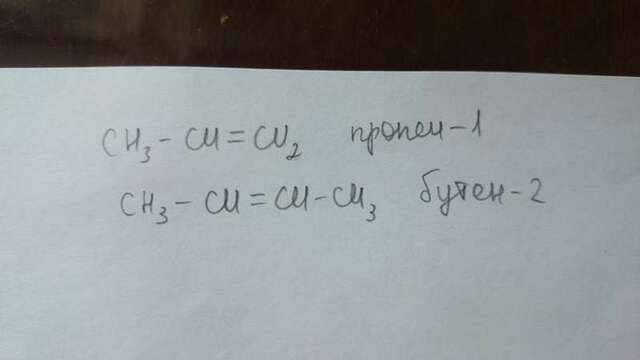 CH₃-CH=CH₂ пропен-1
CH₃-CH=CH-CH₃ бутен-2